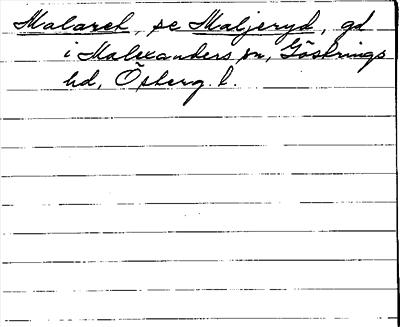 Malaret, se Maljeryd, gd
i Malexanders sn, Göstrings
hd, Österg. l.